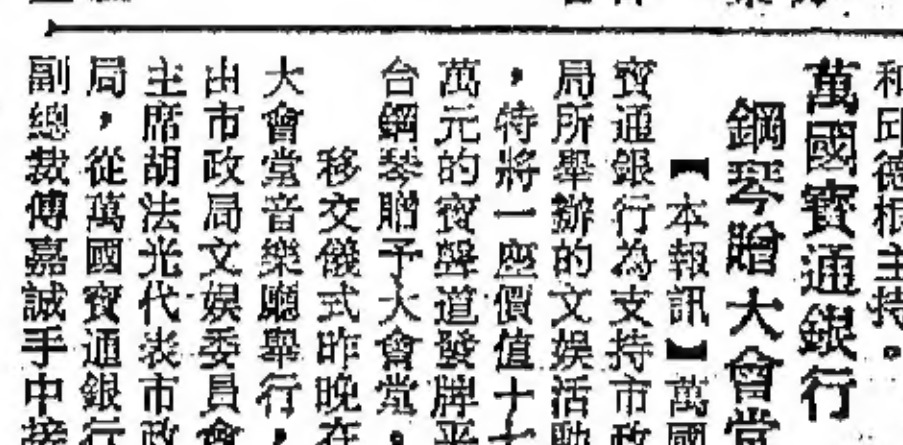 和邱德根主持。
萬國寶通銀行
鋼琴贈大會堂
【本報訊】萬國
寶通銀行為支持市政
局所舉辦的文娛活動
，特將一座價值十七
萬元的寶聲道發牌平
台鋼琴贈予大會堂。
移交儀式昨晚在
大會堂音樂廳舉行，
由市政局文娛委員會
主席胡法光代表市政
局，從萬國寶通銀行
副總裁傅嘉誠手中接